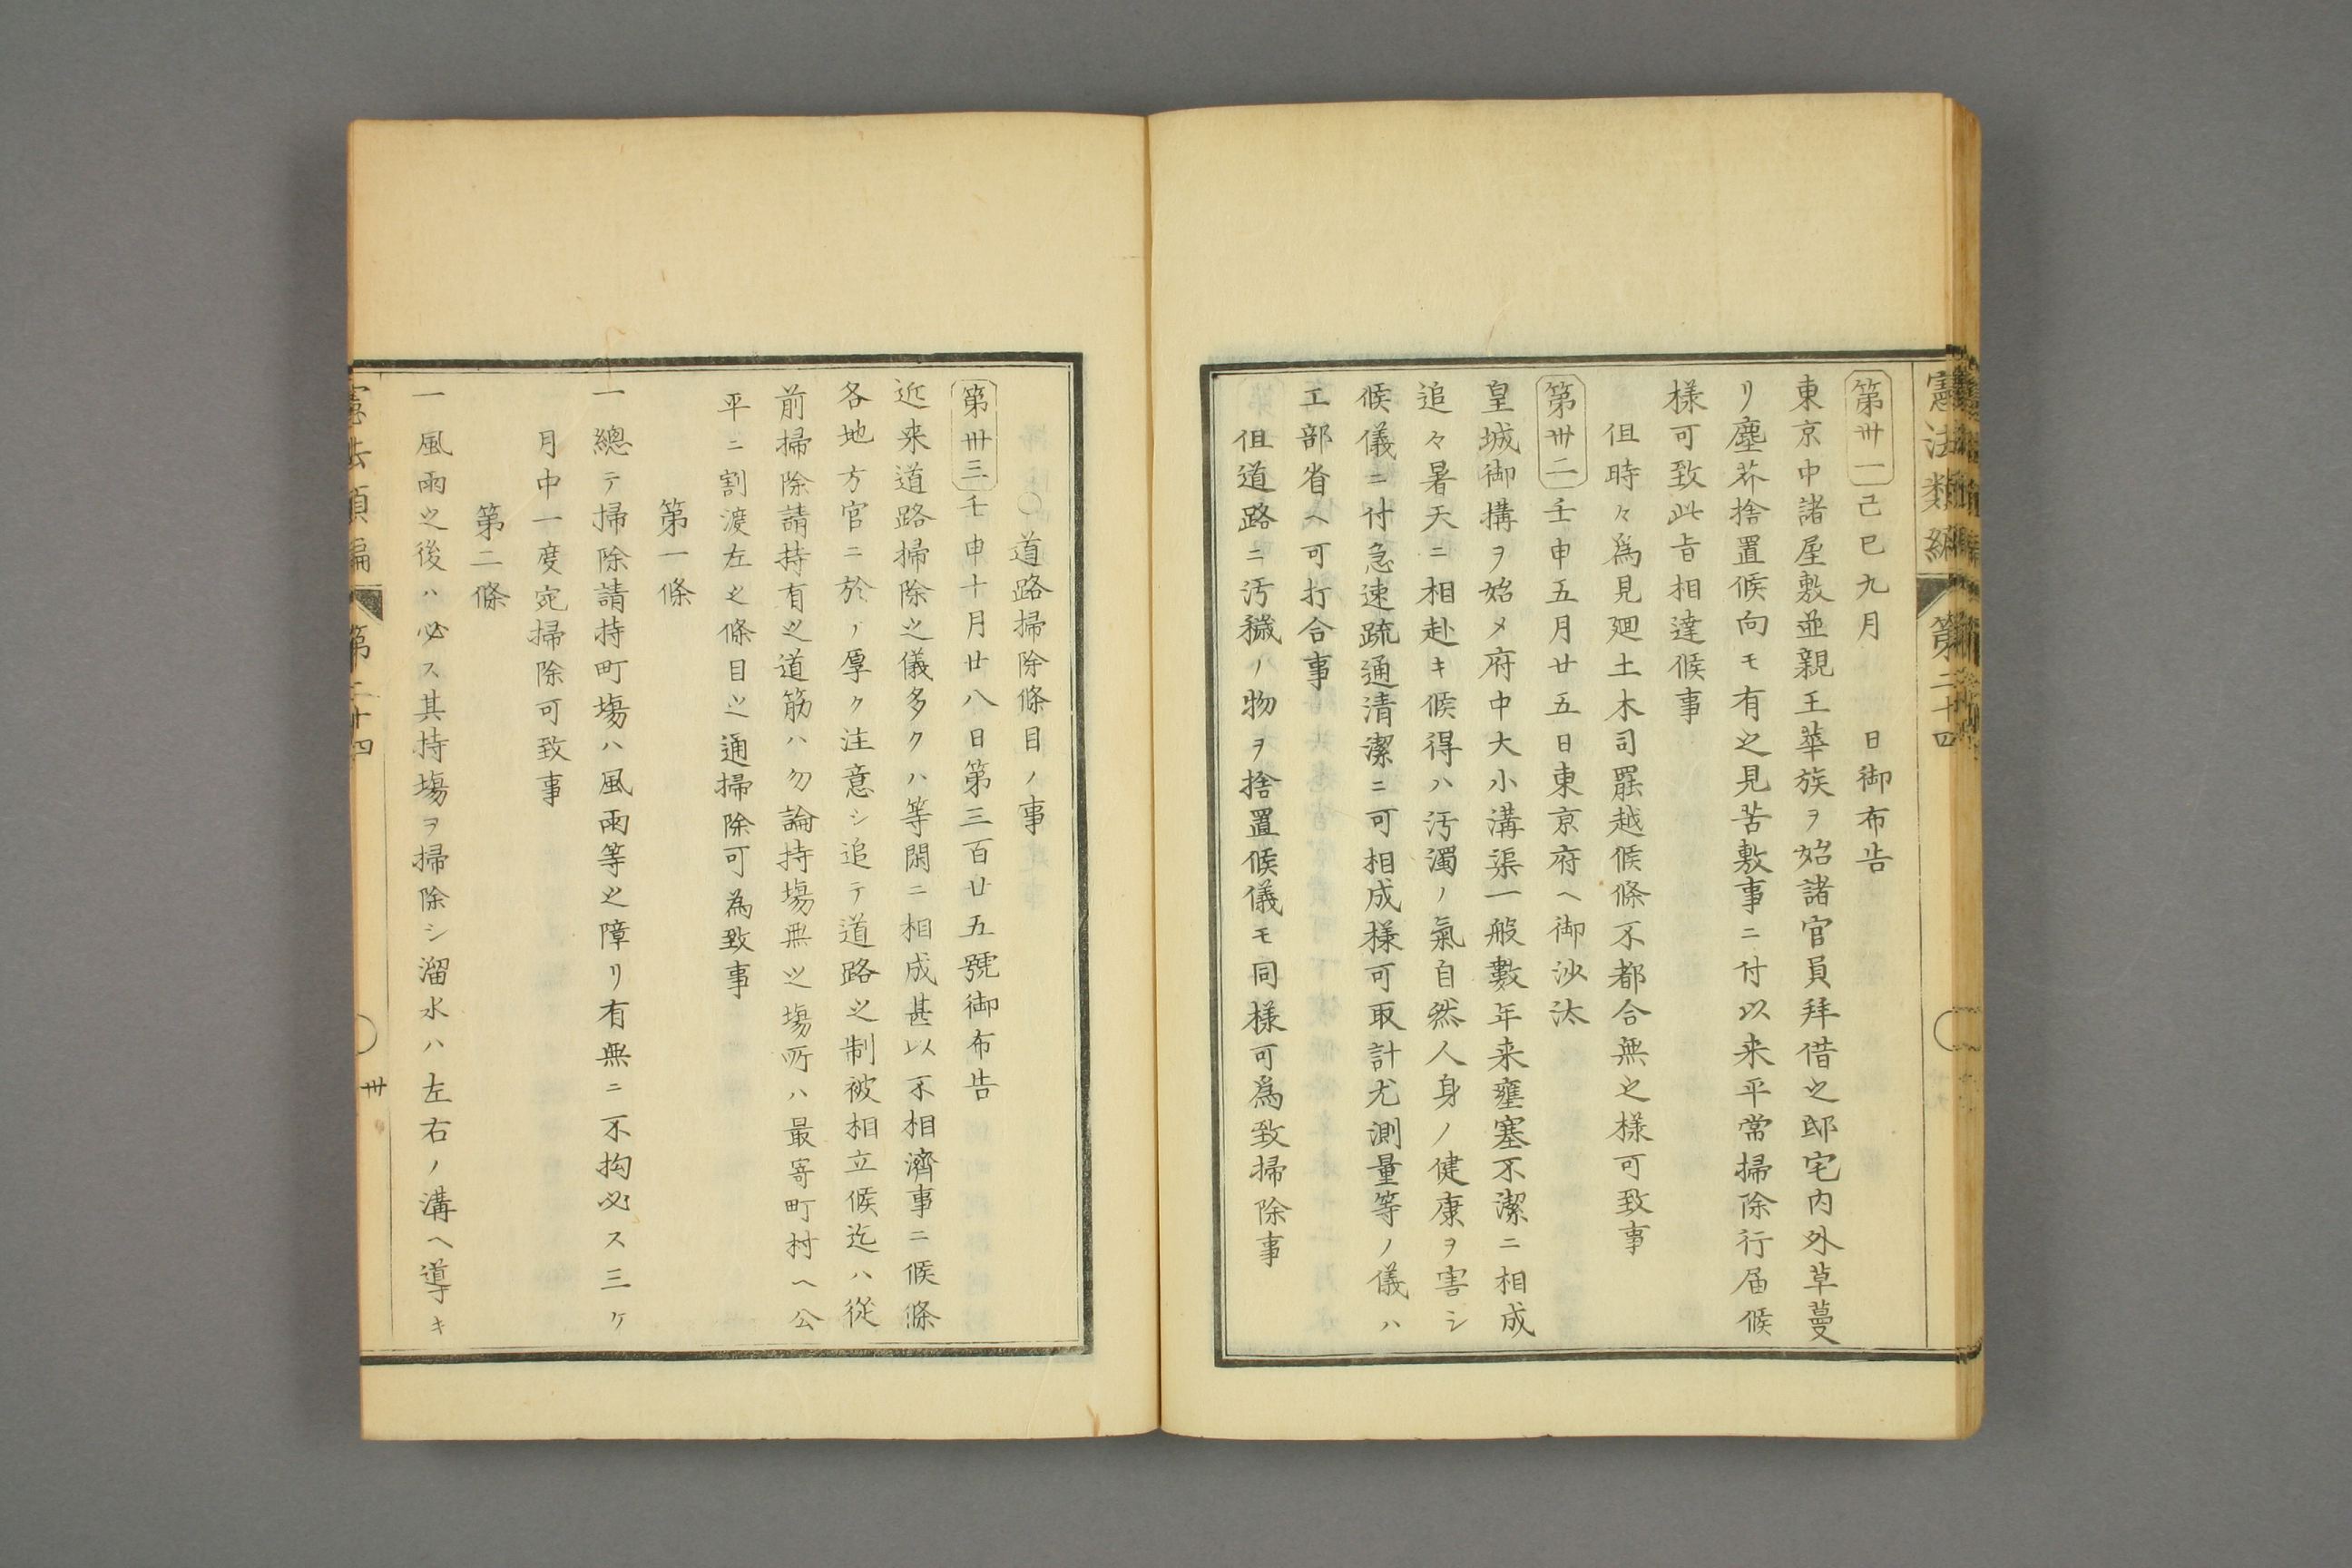 憲法類編 第二十四
第卅一 己巳九月 日御布告
東京中諸屋敷並親王華族ヲ始諸官員拜借之邸宅内外草蔓
リ塵芥捨置候向モ有之見苦敷事ニ付以来平常掃除行届候
様可致此旨相達候事
但時々爲見廻土木司罷越候條不都合無之様可致事
第卅二 壬申五月廿五日東亰府ヘ御沙汰
皇城御搆ヲ始メ府中大小溝渠一般數年来壅塞不潔ニ相成
追々暑天ニ相赴キ候得ハ汚濁ノ氣自然人身ノ健康ヲ害シ
候儀ニ付急速疏通清潔ニ可相成様可取計尤測量等ノ儀ハ
工部省ヘ可打合事
但道路ニ汚穢ノ物ヲ捨置候儀モ同様可爲致掃除事
〇道路掃除條目ノ事
第卅三 壬申十月廿八日第三百廿五號御布告
近来道路掃除之儀多クハ等閑ニ相成甚以不相濟事ニ候條
各地方官ニ於テ厚ク注意シ追テ道路之制被相立候迄ハ從
前掃除請持有之道筋ハ勿論持塲無之塲所ハ最寄町村ヘ公
平ニ割渡左之條目之通掃除可為致事
第一條
一總テ掃除請持町塲ハ風雨等之障リ有無ニ不拘必ス三ケ
月中一度宛掃除可致事
第二條
一風雨之後ハ必ス其持塲ヲ掃除シ溜水ハ左右ノ溝ヘ導キ
憲法類編 第二十四 卅